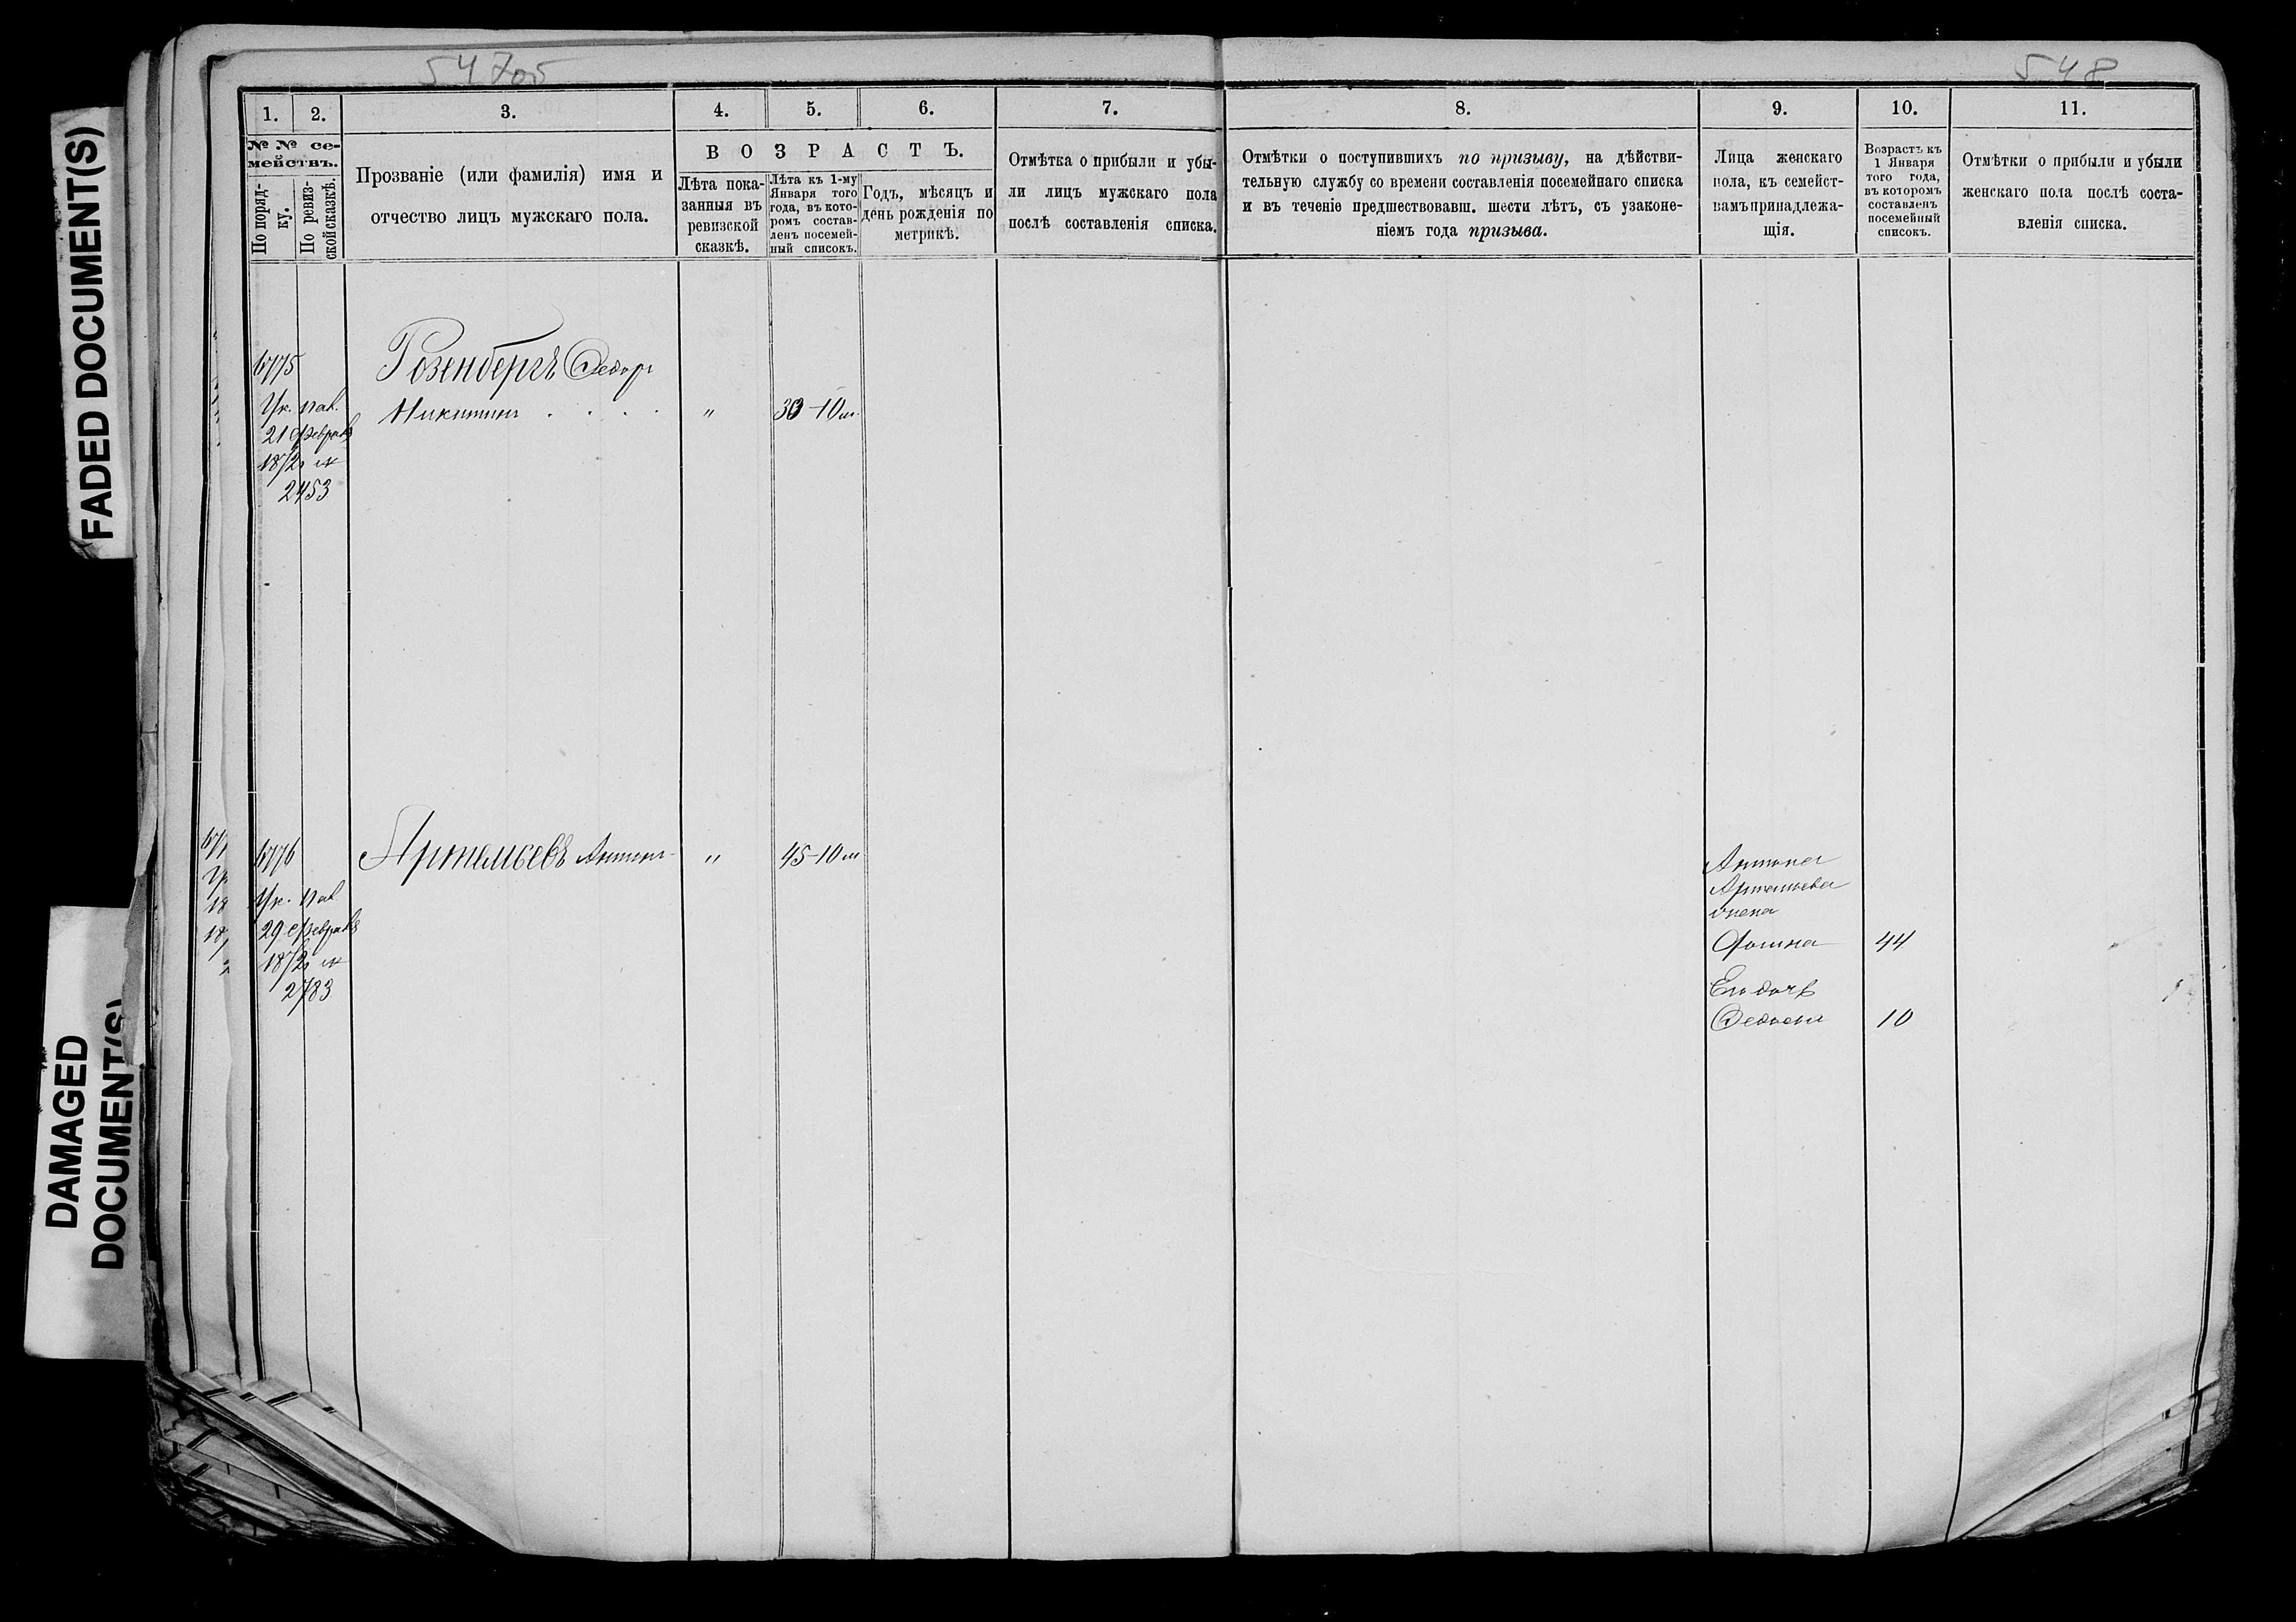 547об
548
FADED DOCUMENT(S)
DAMAGED
DOCUMENT(S)
1.
2.
3.
4.
5.
6.
7.
8.
9.
10.
11.
№ № се-
мействъ.
По поряд-
ку.
По ревиз-
ской сказкѣ.
Прозваніе (или фамилія) имя и
отчество лицъ мужскаго пола.
ВОЗРАСТЪ.
Лѣта пока-
занныя въ
ревизской
сказкѣ.
Лѣта къ 1-му
Января того
года, въ кото-
ромъ состав-
ленъ посемей-
ный списокъ.
Годъ, мѣсяцъ и
день рожденія по
метрикѣ.
Отмѣтка о прибыли и убы-
ли лицъ мужскаго пола
послѣ составленія списка.
Отмѣтки о поступившихъ по призыву, на дѣйстви-
тельную службу со времени составленія посемейнаго списка
и въ теченіе предшествовавш. шести лѣтъ, съ узаконе-
ніемъ года призыва.
Лица женскаго
пола, къ семейст-
вамъ принадлежа-
щія.
Возрастъ къ
1 Января
того года,
въ которомъ
составленъ
посемейный
списокъ.
Отмѣтки о прибыли и убыли
женскаго пола послѣ соста-
вленія списка.
6775
Розенбергъ Федоръ
Ук. пал.
Никитинъ . . . . " 30-10м.
21 Февраля
1872 №
2453
6776
Артемьевъ Антипъ " 45-10м
Ук. пал
29 Февраля
1872 №
2783
Антипа
Артемьева
жена
Фомина 44
Его дочь
Федосья 10